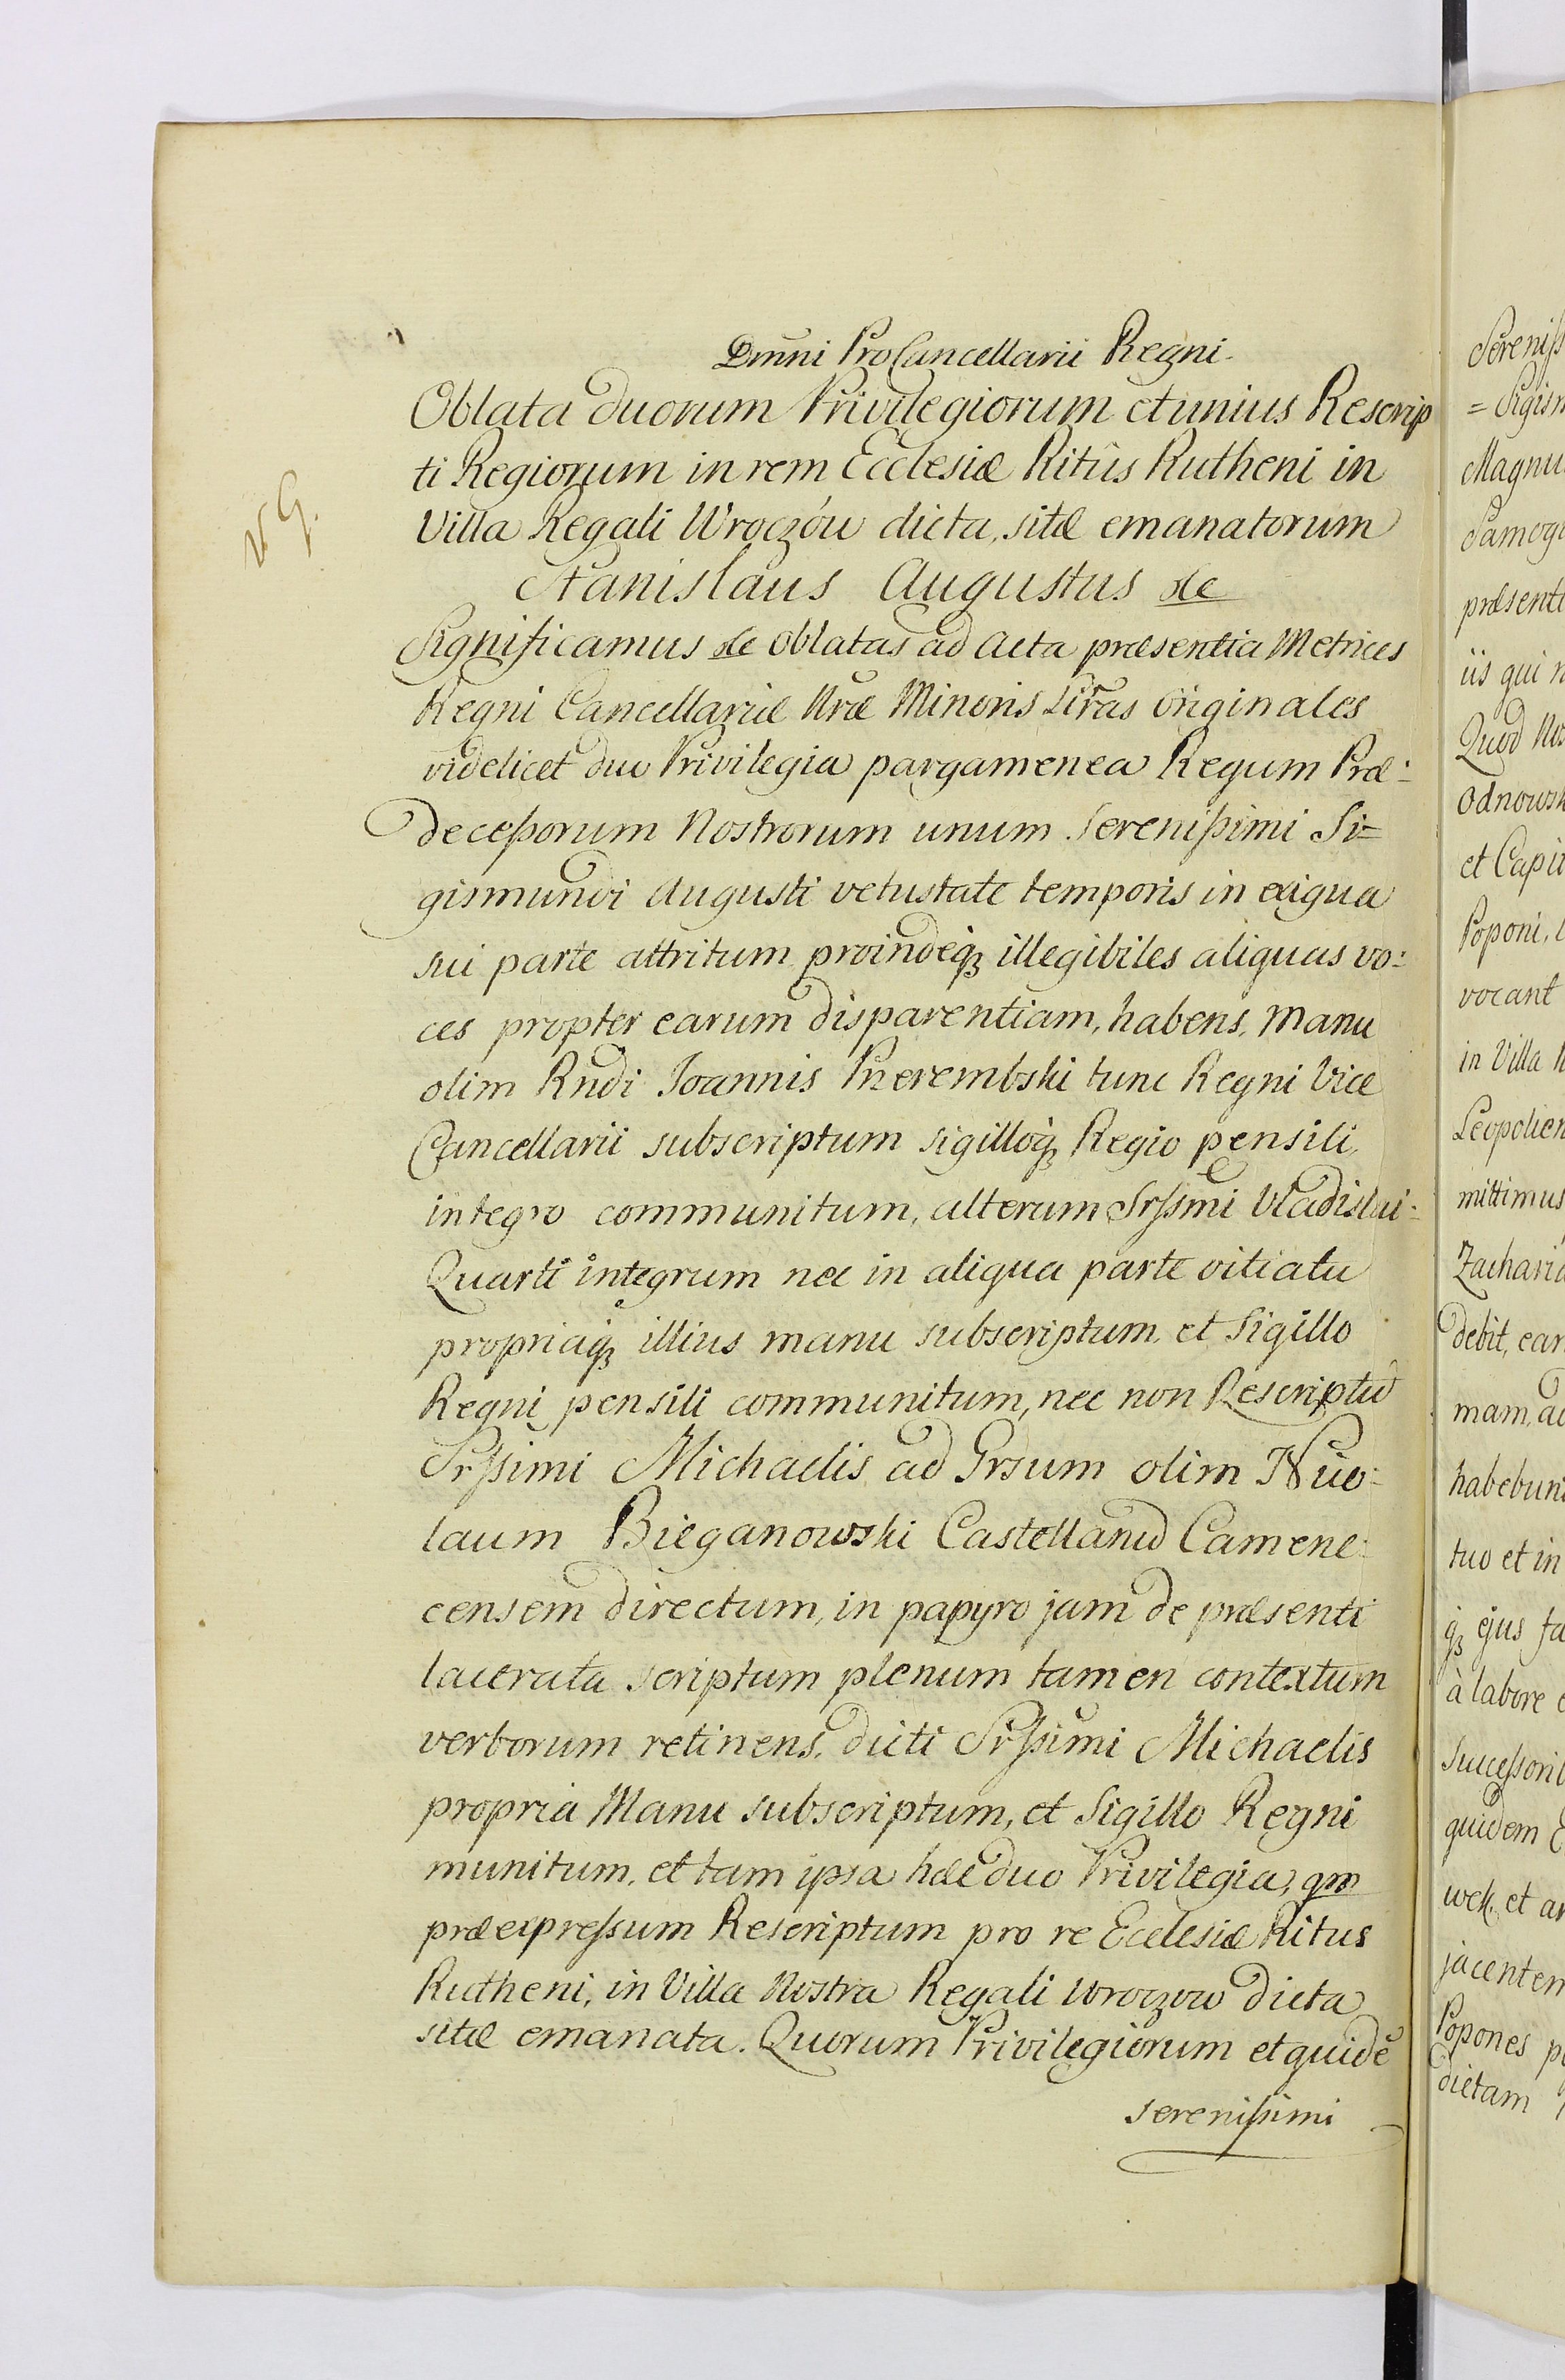 Dmni ProCancellarii Regni.
Oblata duorum Privilegiorum et unius Rescrip
ti Regiorum in rem Ecclesiæ Ritûs Rutheni in
Villa Regali Wroczów dicta, sitæ emanatorum
V. G.
Stanislaus Augustus &c
Significamus &c Oblatas ad Acta præsentia Metrices
Regni Cancellariæ Nræ Minoris Litras originales
videlicet duo Privilegia pargamenea Regum Præ:
decessorum Nostrorum unum Serenissimi Si=
gismundi Augusti vetustate temporis in exigua
sui parte attritum proindeq3 illegibiles aliquas vo:
ces propter earum disparentiam, habens, manu
olim Rndi Joannis Przerembski tunc Regni Vice
Cancellarii subscriptum sigilloq3 Regio pensili,
integro communitum, alterum Srssmi Vladislai:
Quarti integrum nec in aliqua parte vitiatu
propriaq3 illius manu subscriptum et Sigillo
Regni pensili communitum, nec non Rescriptu
Srssimi Michaelis ad Grsum olim Nico:
laum Bieganowski Castellanu Camene:
censem directum, in papyro jam de præsenti
lacerata scriptum plenum tamen contextum
verborum retinens, dicti Srssimi Michaelis
propria Manu subscriptum, et Sigillo Regni
munitum, et tam ipsa hæc duo Privilegia, qm
præexpressum Rescriptum pro re Ecclesiæ Ritus
Rutheni, in Villa Nostra Regali Wroczow dicta
sitæ emanata. Quorum Privilegiorum et quidē
serenissimi
Sereniss
=Sigism
Magnu
Samogi
præsenti
iis qui n
Quod No
Odnowsk
et Capit
Poponi,
vocant
in Villa
Leopolien
mittimus
Zacharia
debit, ear
mam, ac
habebun
tuo et in
q3 ejus fa
à labore
Successorib
quidem
wek. et ar
jacentem
Popones p
dictam